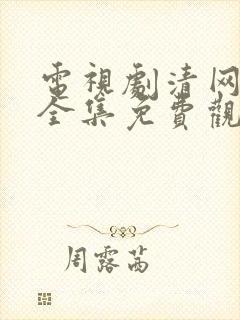 電視劇清网
全集免費觀
周露茜